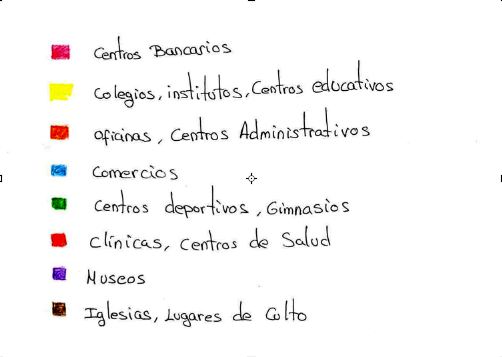 Centros Bancarios
Colegios, institutos, Centros educativos
oficinas, Centros Administrativos
Comercios
Centros deportivos, Gimnasios
Clínicas, Centros de Salud
Museos
Iglesias, Lugares de Culto